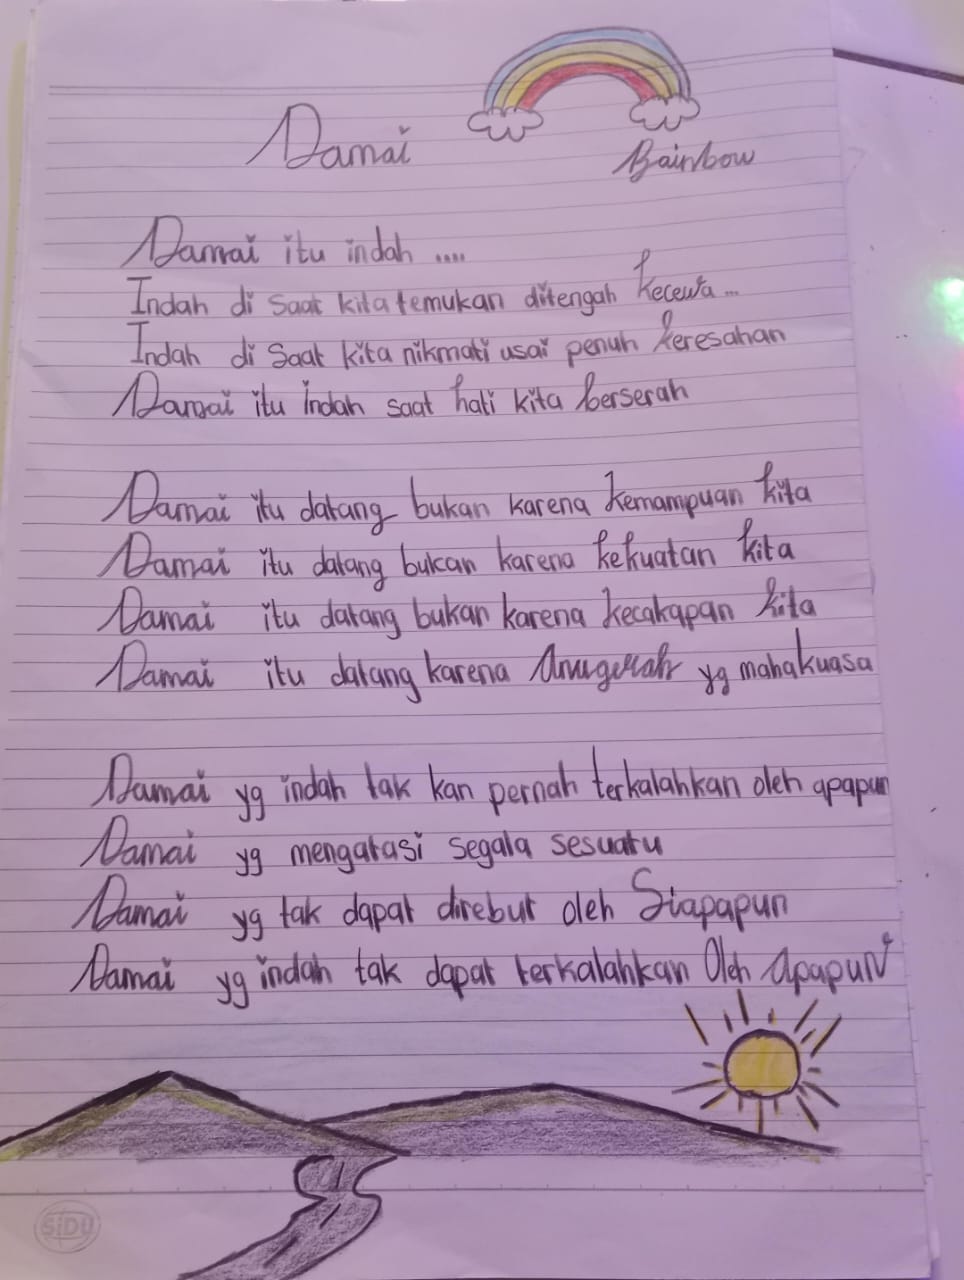 Damai
Rainbow
Damai itu indah ....
Indah di saat kita temukan ditengah kecewa ...
Indah di saat kita nikmati usai penuh keresahan
Damai itu indah saat hati kita berserah
Damai itu datang bukan karena kemampuan kita
Damai itu datang bukan karena kekuatan kita
Damai itu datang bukan karena kecakapan kita
Damai itu datang karena Anugerah yg mahakuasa
Damai yg indah tak kan pernah terkalahkan oleh apapun
Damai yg mengatasi segala sesuatu
Damai yg tak dapat direbut oleh Siapapun
Damai yg indah tak dapat terkalahkan Oleh apapun
SiDU